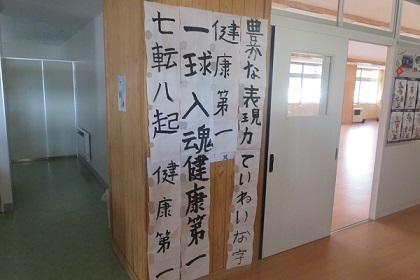 豊かな表現力
ていねいな字
健康第一
一球入魂
健康第一
七転八起
健康第一